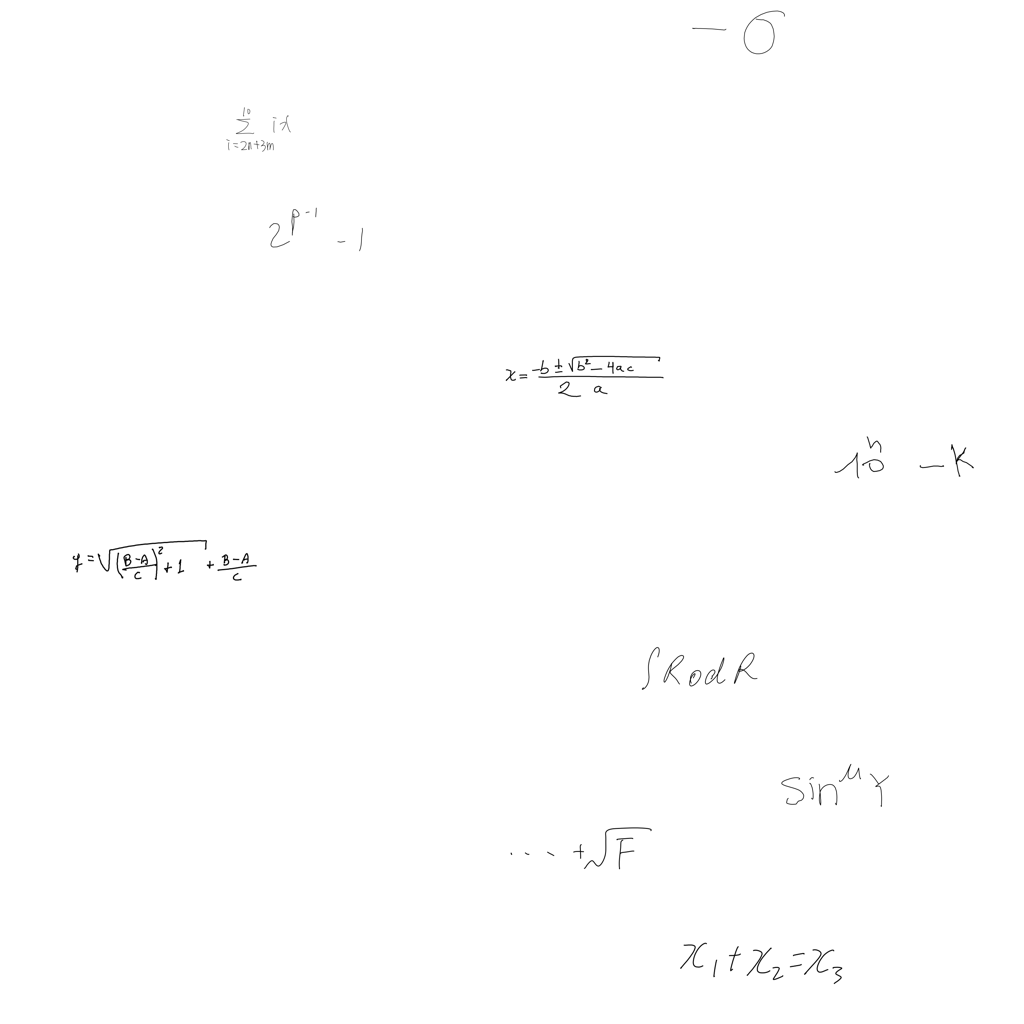 −σ
\sum_{i=2n+3m}^{10} ix
2^{p-1} - 1
x = \frac{-b \pm \sqrt{b^2 - 4ac}}{2a}
10^n - k
y = \sqrt{\left(\frac{B-A}{C}\right)^2 + 1} + \frac{B-A}{C}
\int R_0 dR
\sin^{\mu} Y
\dots + \sqrt{F}
x_1 + x_2 = x_3